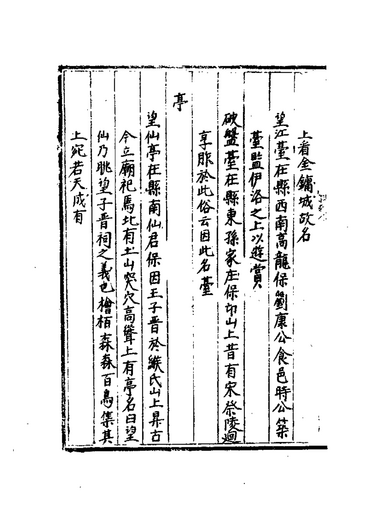 上看金鏞城故名
望江臺在縣西南高龍保劉康公食邑時公築
臺監伊洛之上以遊賞
破盤臺在縣東孫家庄保邙山上昔有宋祭陵迴
享胙於此俗云因此名臺
亭
望仙亭在縣南仙君保因王子晋於緱氏山上昇古
今立廟祀焉北有土山突穴高聳上有亭名曰望
仙乃眺望子晋祠之義也檜栢森森百鳥集其
上宛若天成有